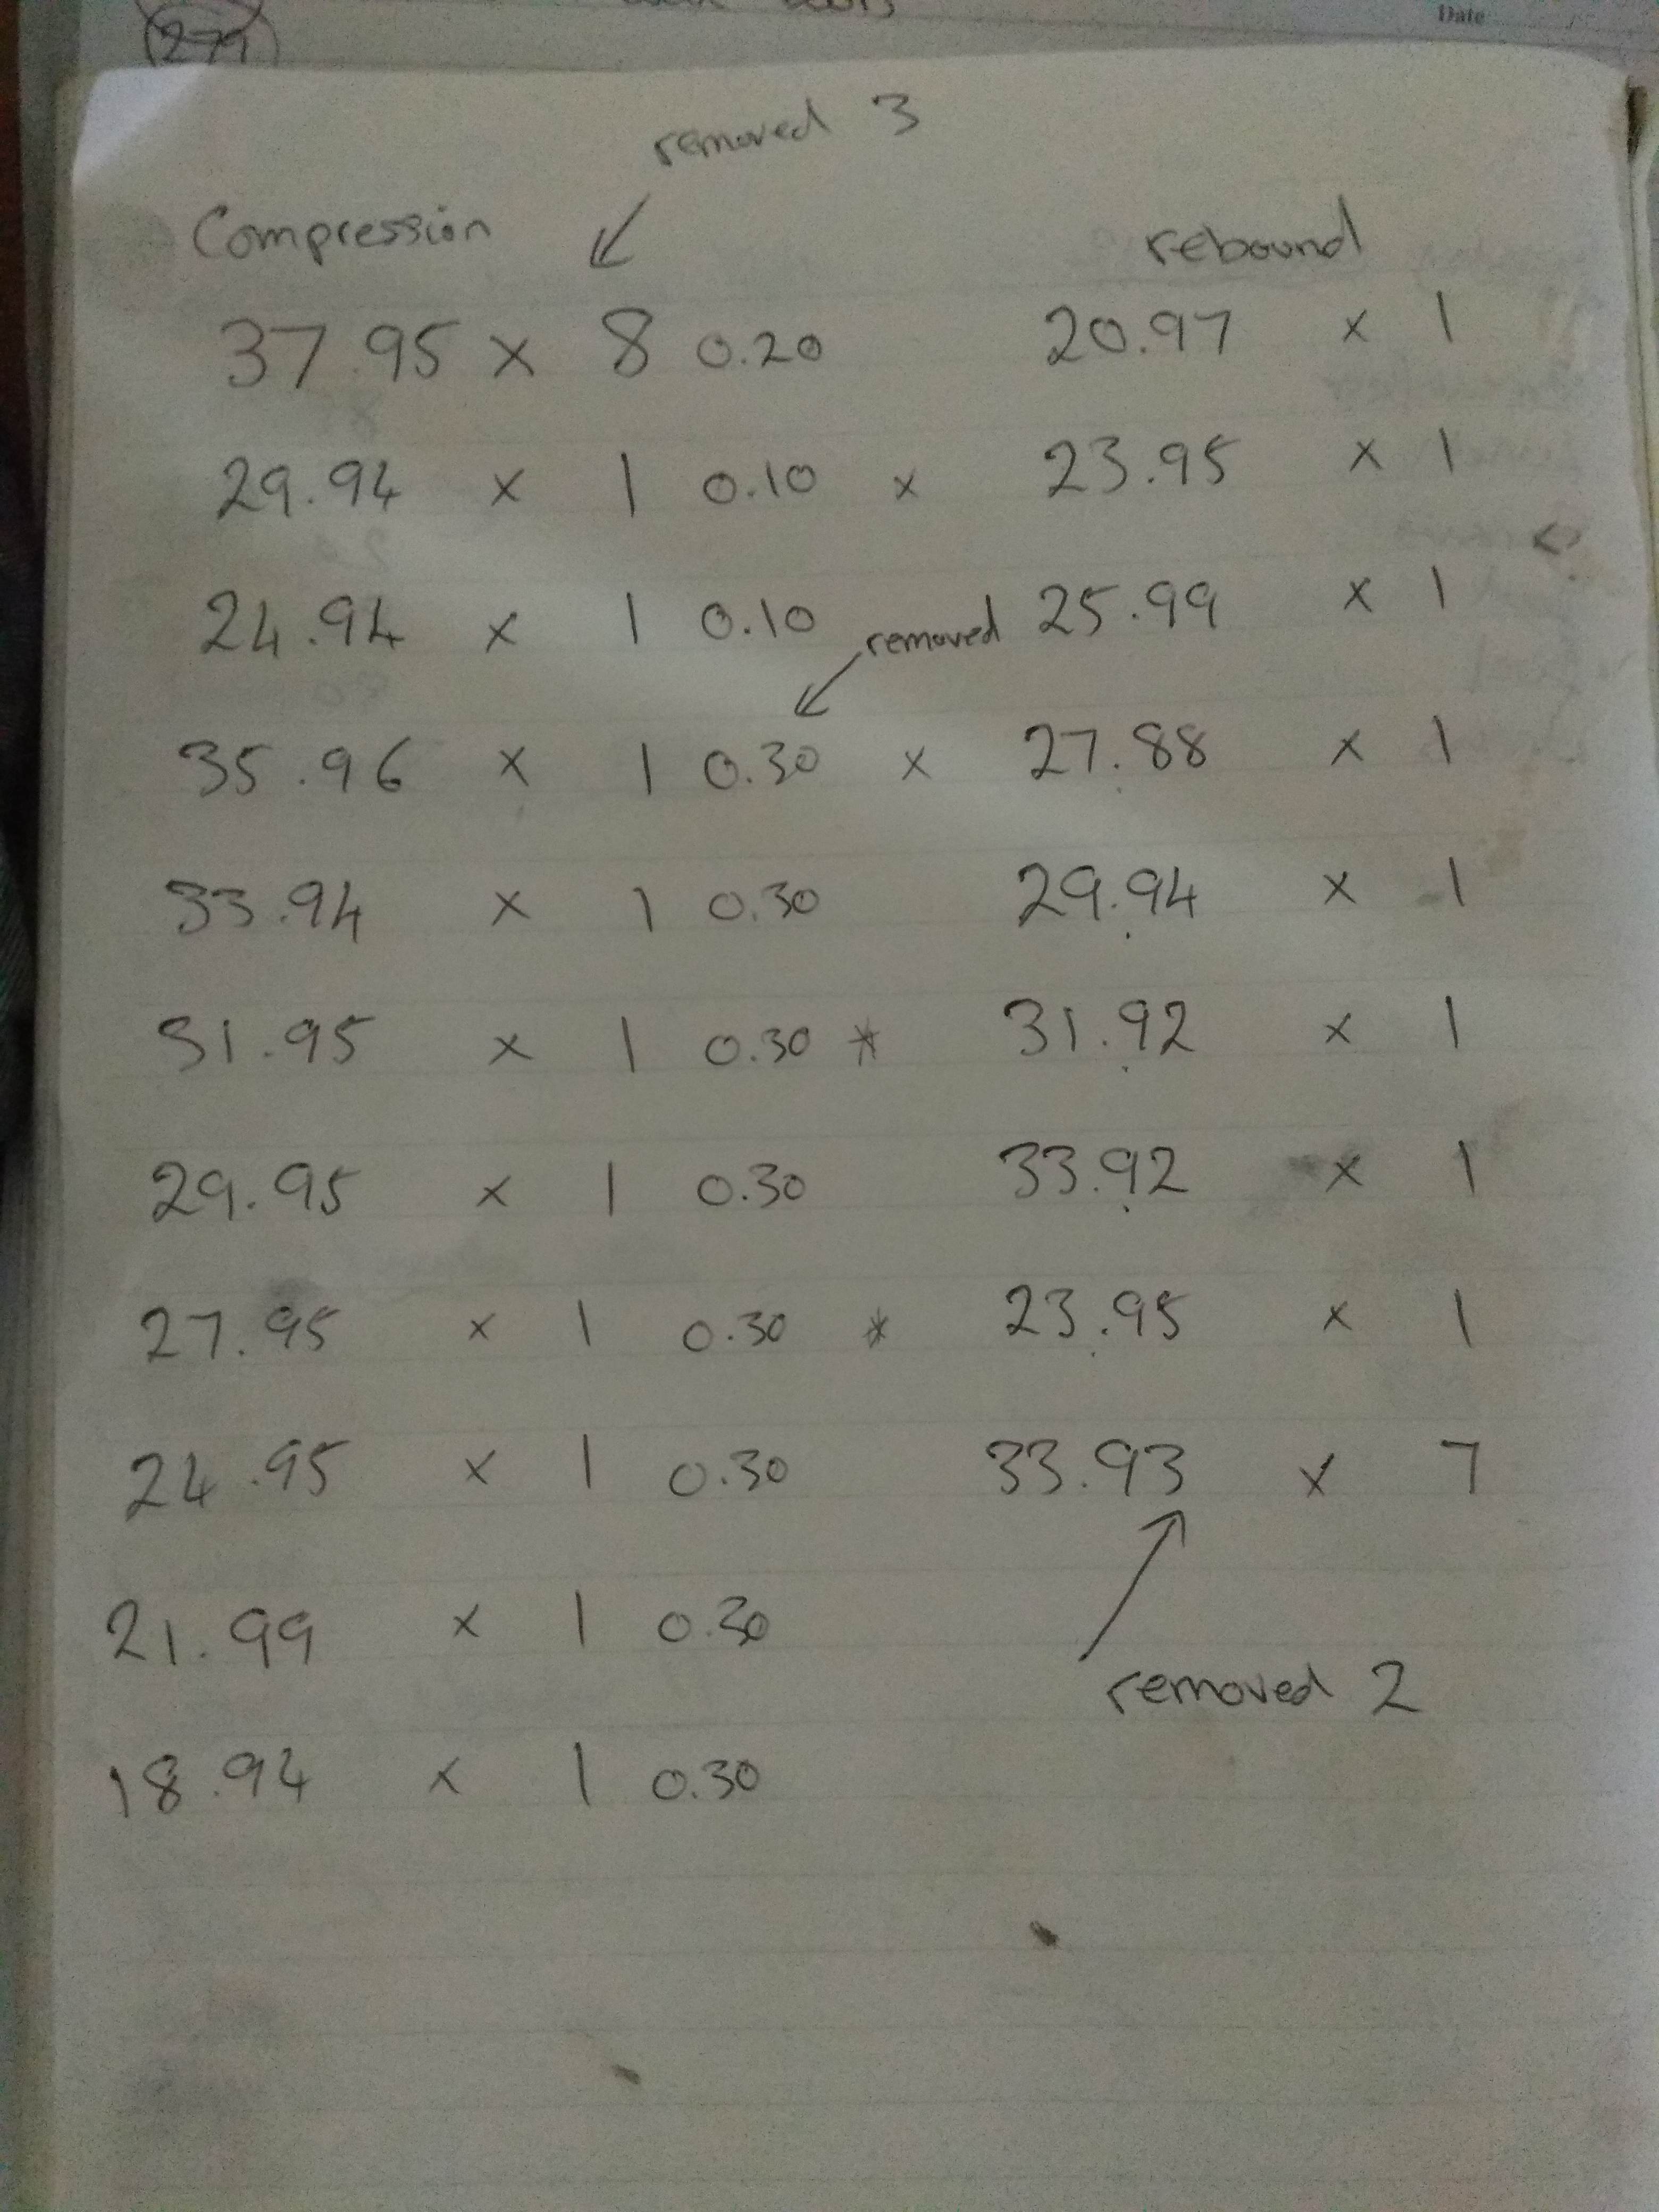 Date
279
removed 3
Compression rebound
37.95 x 8 0.20 20.97 x 1
29.94 x 1 0.10 x 23.95 x 1
24.94 x 1 0.10 25.99 x 1
removed
35.96 x 1 0.30 x 27.88 x 1
33.94 x 1 0.30 29.94 x 1
31.95 x 1 0.30 * 31.92 x 1
29.95 x 1 0.30 33.92 x 1
27.95 x 1 0.30 * 23.95 x 1
24.95 x 1 0.30 33.93 x 7
21.99 x 1 0.30
removed 2
18.94 x 1 0.30